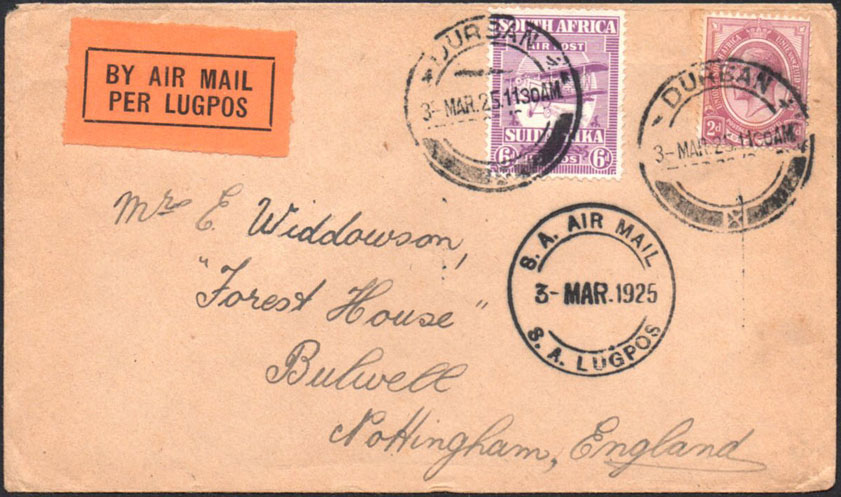 BY AIR MAIL
PER LUGPOS
SOUTH AFRICA
AIR POST
6d 6d
DURBAN
3-MAR.25.1130AM
2d
DURBAN
3-MAR.25.1130AM
Mrs E. Widdowson,
"Forest House"
Bulwell
Nottingham, England
S. A. AIR MAIL
3-MAR.1925
S. A. LUGPOS